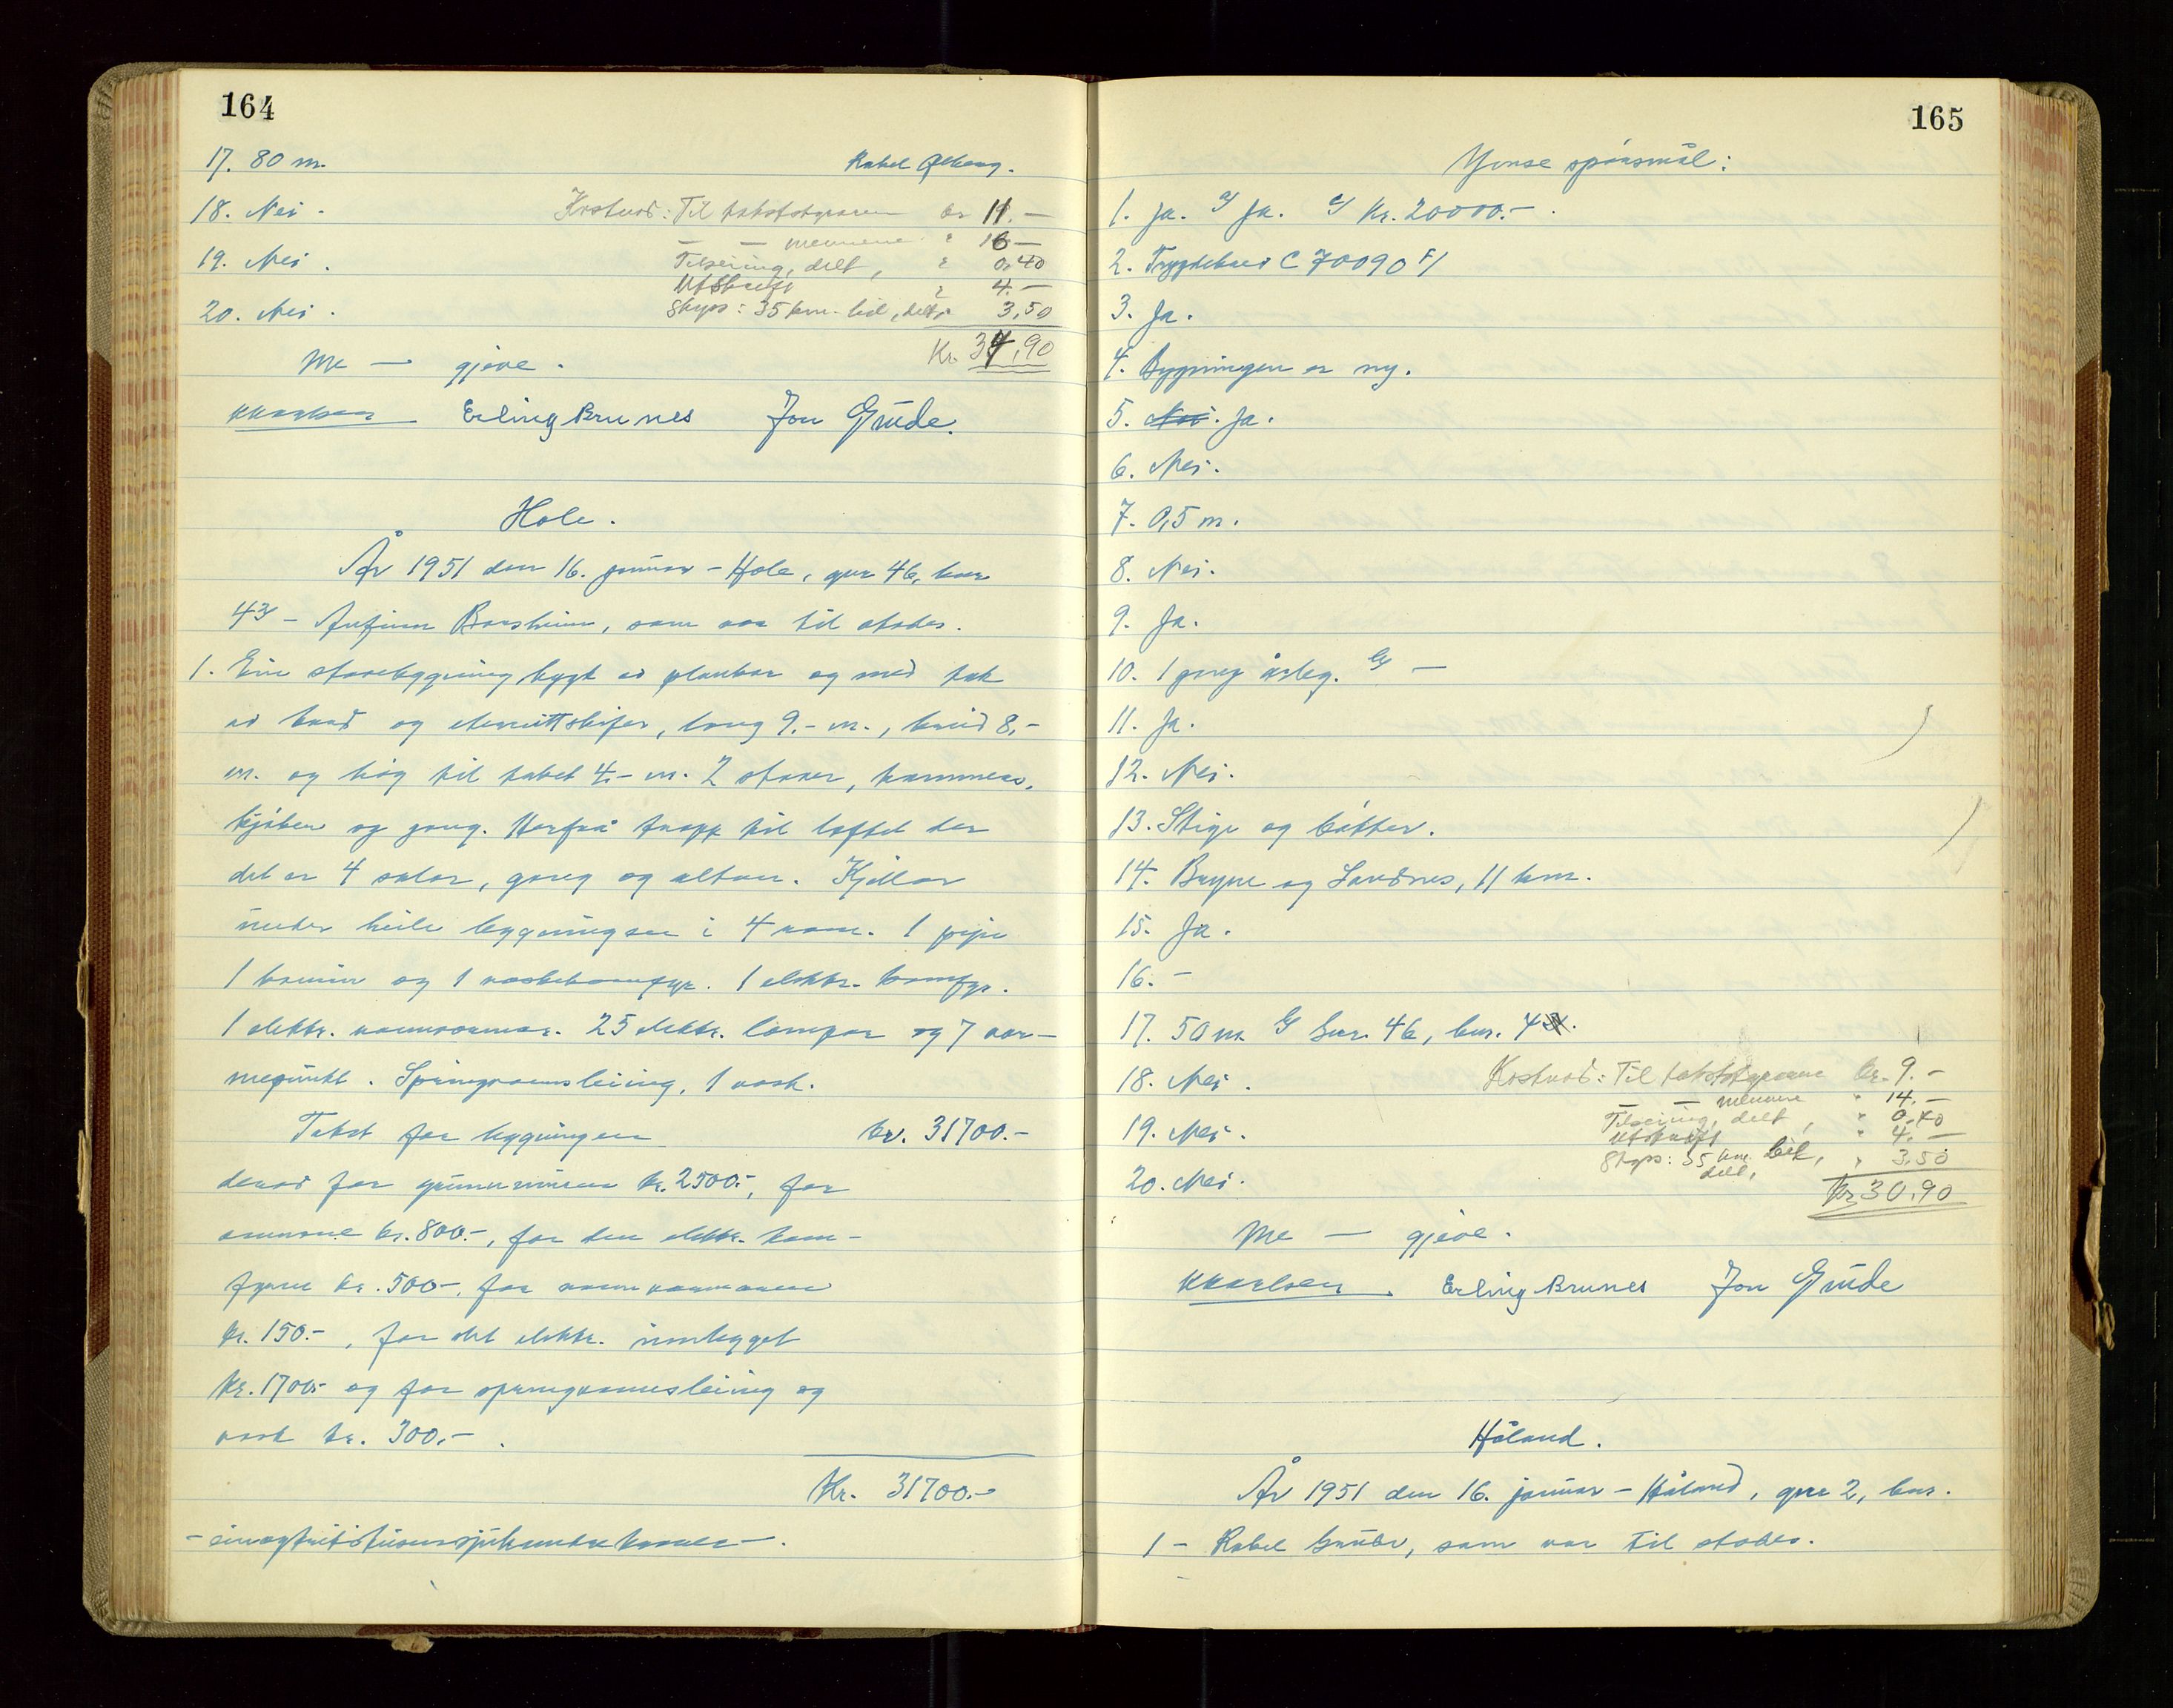 164
17. 80 m. Rakel
18. Nei. Kostnad: Til takststyraren kr 11.-
— — mennene " 16.-
19. Nei. Telsering, delt, " 0,40
Utskrift " 4.-
20. Nei. Skyss: 35 km. bil, delt, " 3,50
Kr. 34,90
Me — gjeve.
KKarlsen Erling Brunes Jon Grude.
Hole.
År 1951 den 16. januar – Hole, gnr 46, bnr
43 – Anfinn Borsheim, som var til stades.
1. Ein stovebygning bygt av plankar og med tak
av bord og eternittskifer, lang 9.- m., breid 8,-
m. og høg til taket 4.- m. 2 stover, kammers,
kjøken og gang. Herfrå trapp til loftet der
det er 4 salar, gang og altan. Kjellar
under heile bygningen i 4 rom. 1 pipe
1 kamin og 1 vaskekomfyr. 1 elektr. komfyr.
1 elektr. vannvarmar. 25 elektr. lampar og 7 var-
mepunkt. Springvannsleiing, 1 vask.
Takst for bygningen kr. 31700.-
derav for grunnmuren kr. 2500.-, for
omnane kr. 800.-, for den elektr. kom-
fyren kr. 500.-, for vannvarmaren
kr. 150.-, for det elektr. innlegget
kr. 1700.- og for springvannsleiing og
vask kr. 300.-.
Kr. 31700.-
– einogtrettitusensjuhundre kroner –.
165
Ymse spørsmål:
1. Ja. b/ Ja. c/ Kr. 20000.-.
2. Trygdebrev C 70090 F/
3. Ja.
4. Bygningen er ny.
5. Nei. Ja.
6. Nei.
7. 0,5 m.
8. Nei.
9. Ja.
10. 1 gong årleg. b/ —
11. Ja.
12. Nei.
13. Stige og bøtter.
14. Bryne og Sandnes, 11 km.
15. Ja.
16. –
17. 50 m. b/ Gnr. 46, bnr.
18. Nei. Kostnad: Til takststyraren kr. 9.-
— — mennene " 14.-
19. Nei. Telsering, delt, " 0,40
Utskrift " 4.-
Skyss: 35 km. bil, " 3,50
20. Nei. delt,
Kr 30,90
Me — gjeve.
KKarlsen. Erling Brunes Jon Grude
Håland.
År 1951 den 16. januar – Håland, gnr 2, bnr.
1 – Rakel Grude, som var til stades.